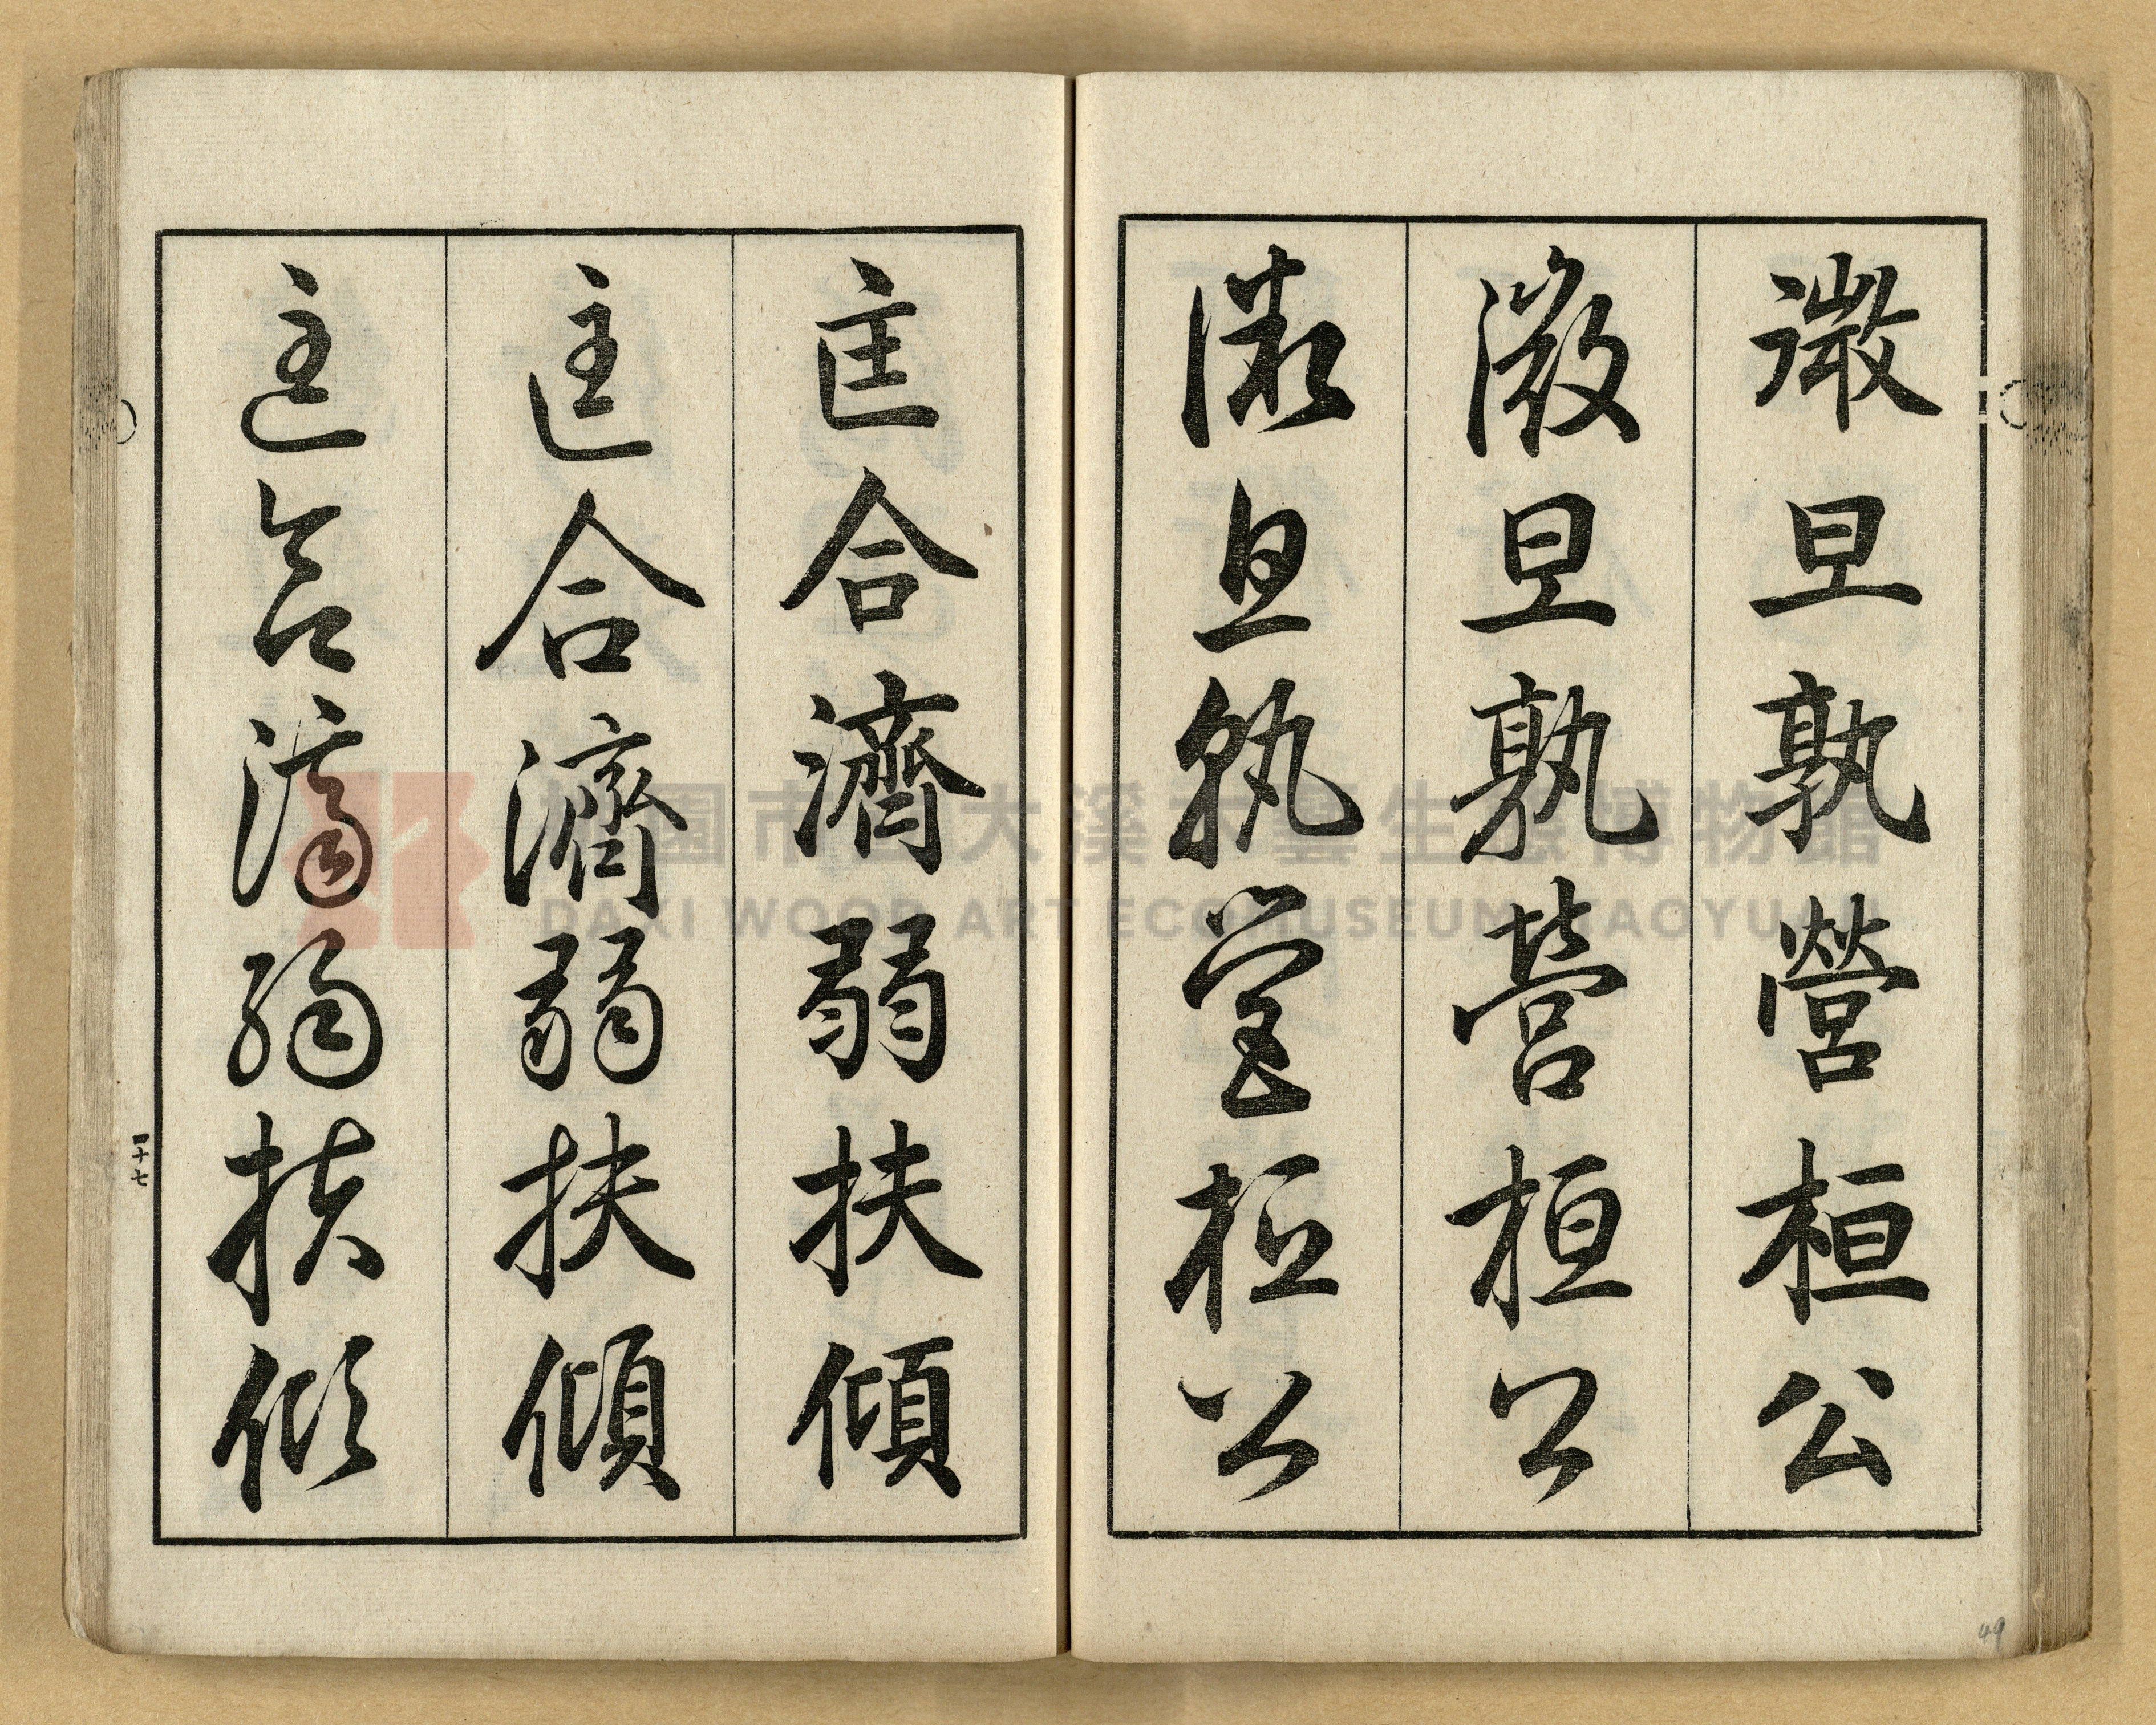 微旦孰營桓公
微旦孰營桓公
微旦孰營桓公
匡合濟弱扶傾
匡合濟弱扶傾
匡合濟弱扶傾
四十七
49
桃園市立大溪木藝生態博物館
DAXI WOOD ART ECOMUSEUM, TAOYUAN